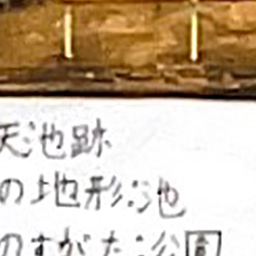 天池跡
の地形:池
のすがた:公園